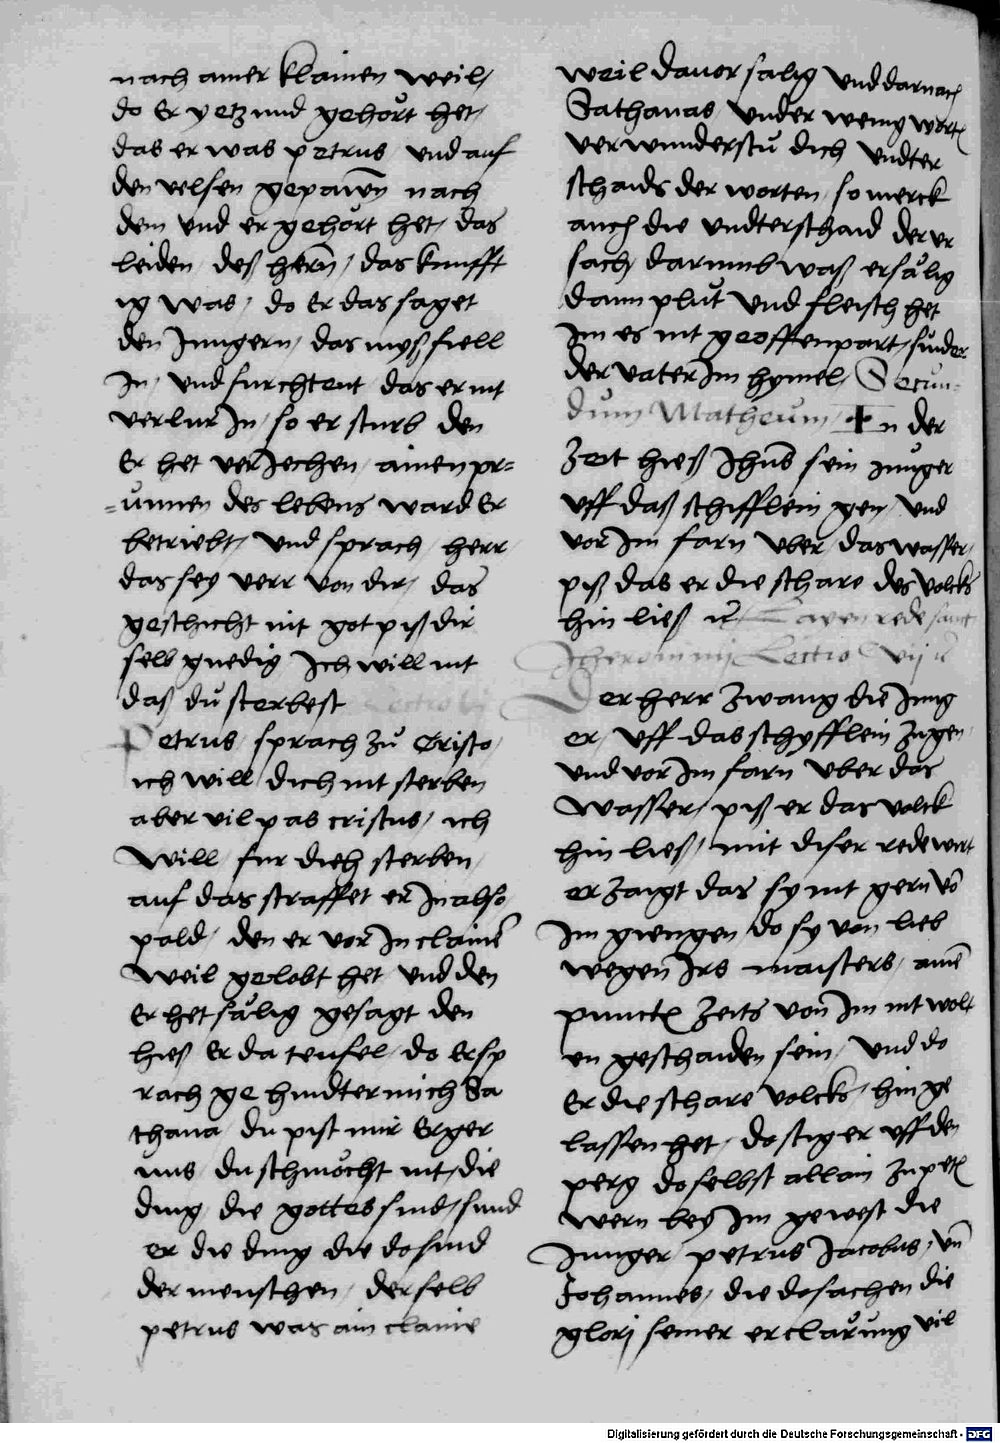 nach ainer klainen weil/
do Er yetzund gehört het/
das er was petrus / und auf
den velsen gepawen nach
dem und er gehört het / das
leiden / deß herrn / das kunfft
ig was / do Er das saget
den Jungern / das myßfiell
In / und furchtent das er nit
verlur In / so er sturb den
Er het verJechen / ainen pr=
=unnen des lebens ward Er
betriebt / und sprach / herr /
das sey verr von dir / das
geschicht nit got piß dir
selb gnedig Ich will nit
daß dü sterbest Lectio
Petrus / sprach zü Cristo /
ich will dich nit sterben
aber vil pas cristus / ich
will / fur dich sterben /
auf das straffet er In also
pald / den er vor In clainer
weil gelobt het und den
Er het sälig gesagt den
hieß Er da teufel / do Er sp
rach ge hindter mich Sa
thana / du pist mir Erger
nus / du schmöcht nit / die
ding / die gottes sind / sund
er die ding die do sind
der menschen / der selb
petrus was ain claine
weil davor sälig und darnach
Sathanas / under wenig worten
verwunderstü dich undter
schaids der worten / so merck
auch die undterschaid der ur
sach / darumb waß er sälig
dann plüt und fleisch het
Im es nit geoffenpart / sunder
der vater Im hymel / Secun=
dum Matheum / In der
Zeit hieß Jhus sein junger
uff daß schifflein gen / und
vor Im farn uber / das wasser /
piß das er die schare des volcks
hin ließ
Jheronimij Lectio vij
Der herr zwang die Jung
er / uff das schyfflein zugen /
und vor Im farn uber das
wasser / piß er das volck
hin ließ / mit diser rede wirt
erzaigt das sy nit gern von
Im giengen do sy von lieb
wegen Irs maisters / ainen
puncten zeits von Im nit wolt
en geschaiden sein / und do
Er die schare volcks / hin ge
lassen het / do stig er uff den
perg do selbst allain zu peten
wern bey Im gewest die
Junger / petrus Jacobus / und
Johannes / die do sachen die
glorj seiner erclärung vil
Digitalisierung gefördert durch die Deutsche Forschungsgemeinschaft - DFG